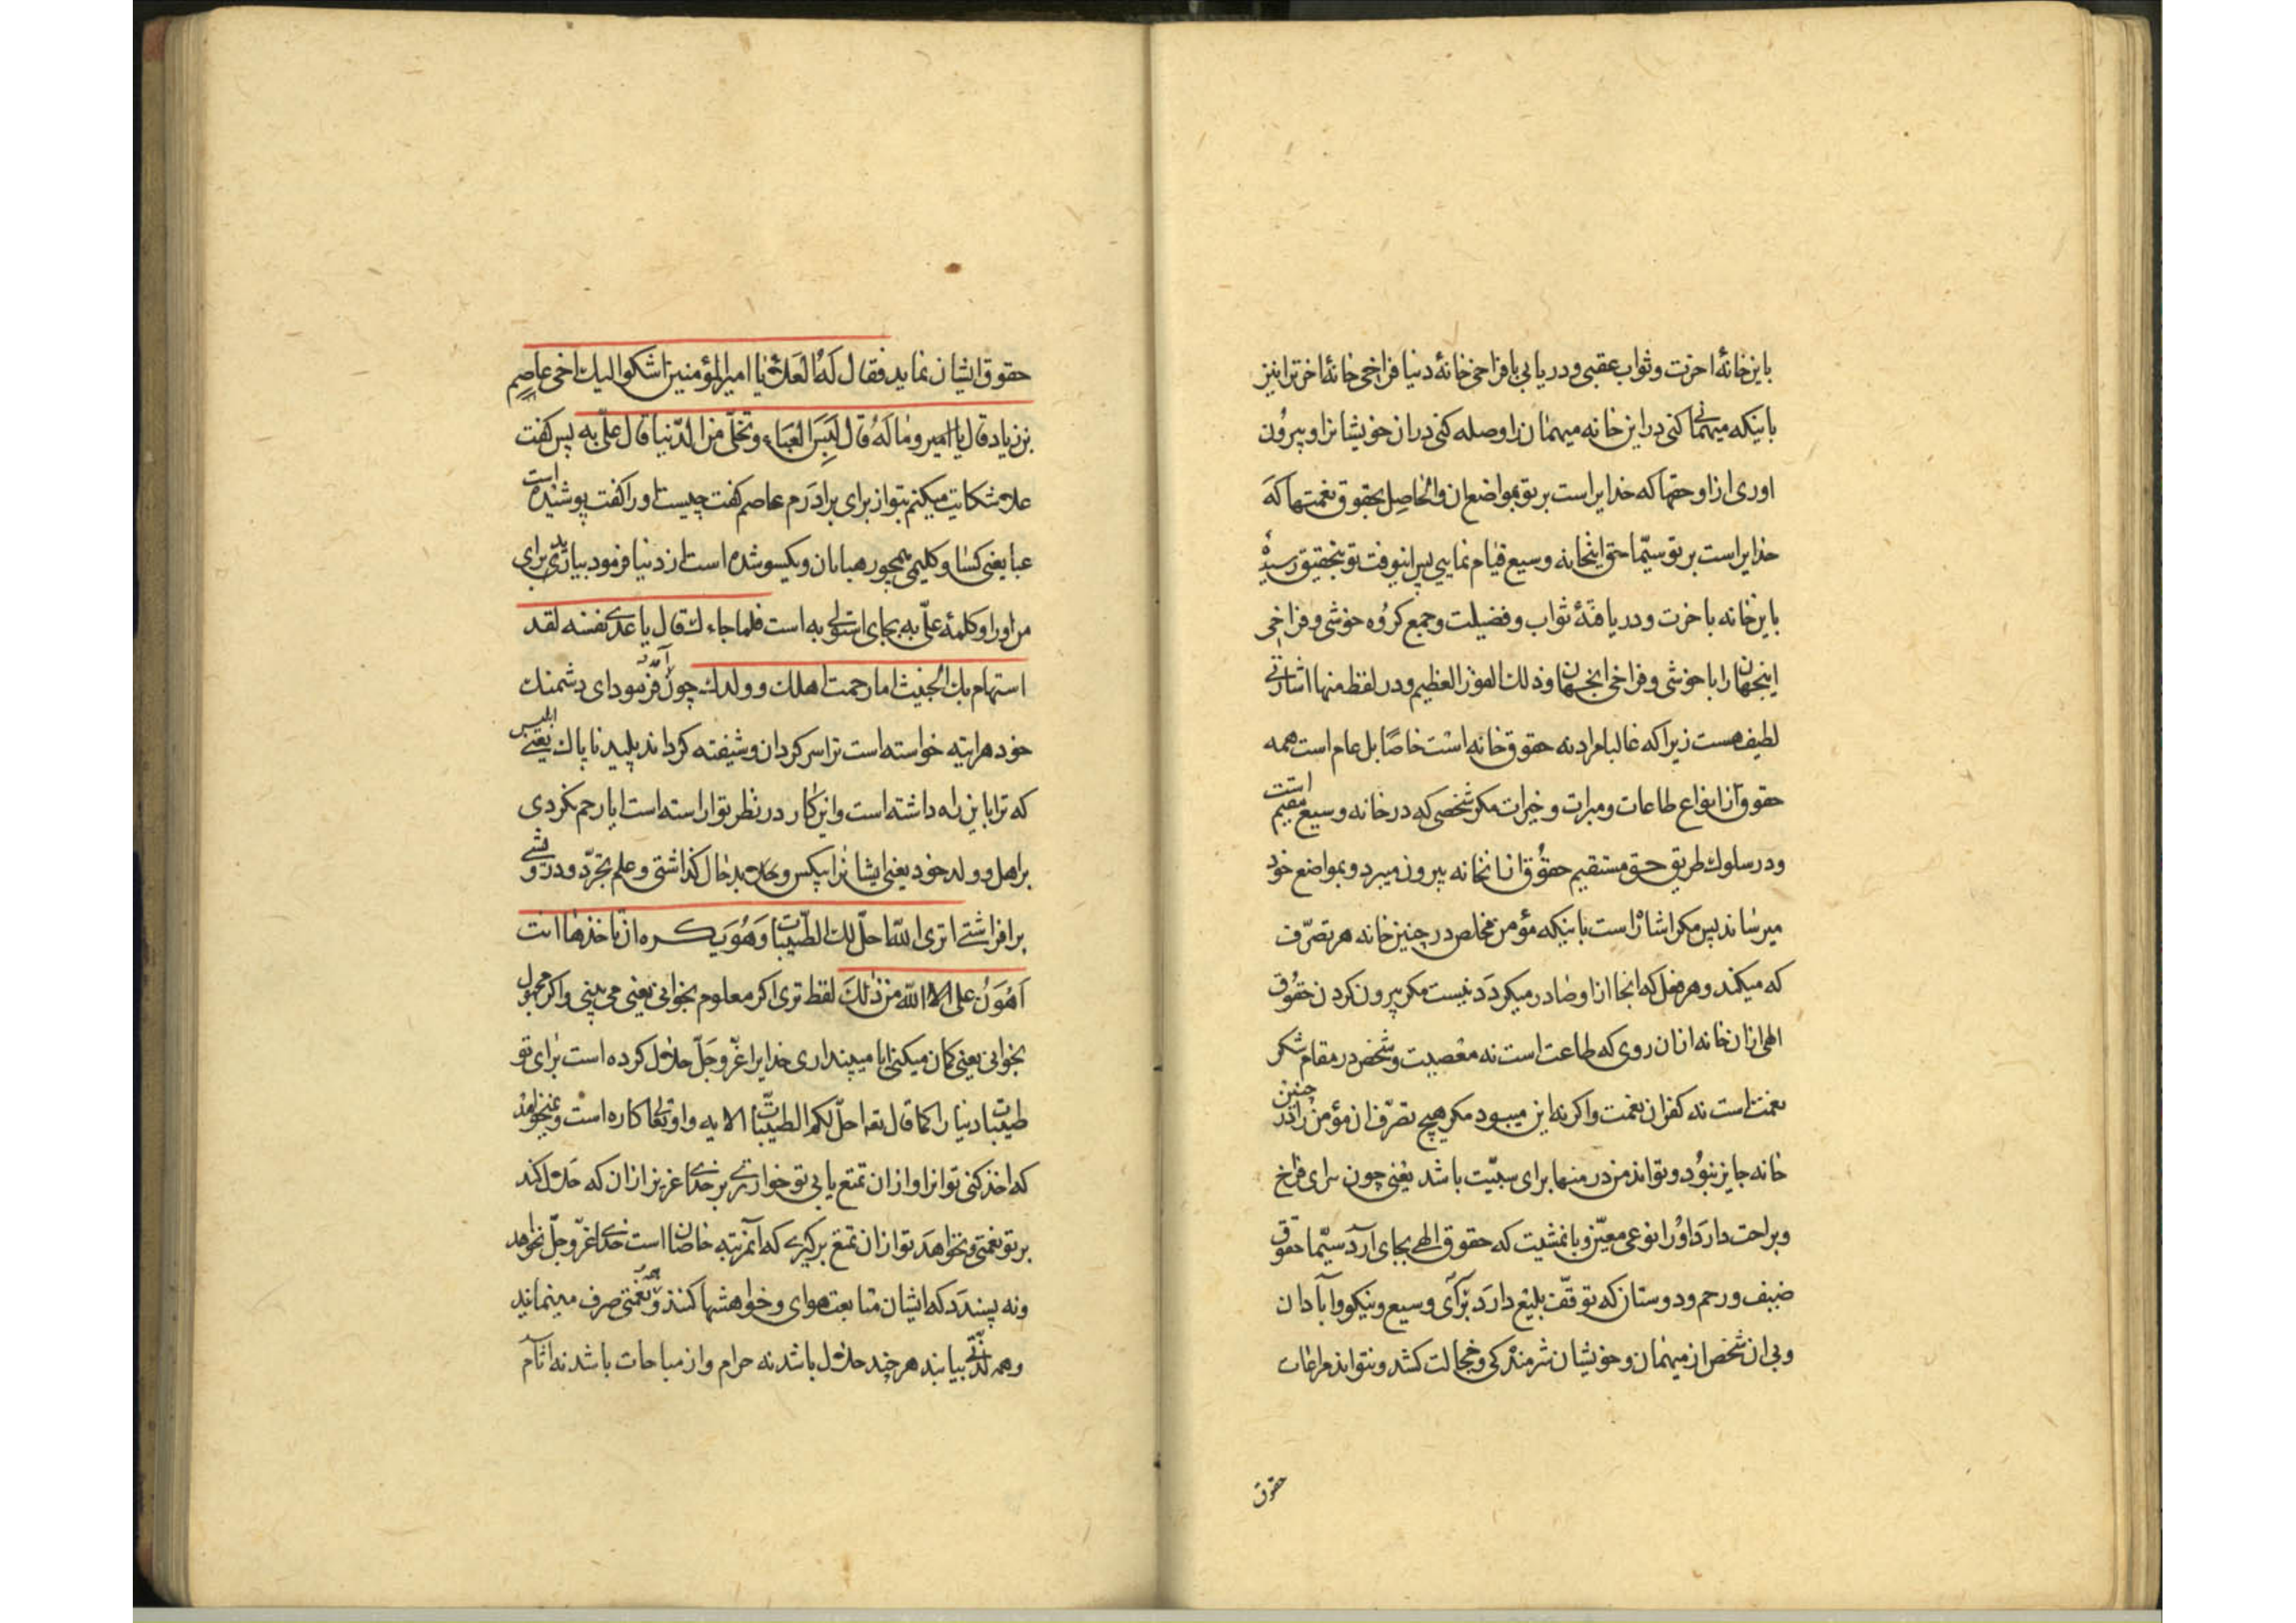 باین خانهٔ اخرت وثواب عقبی ودریابی با فراخی خانهٔ دنیا فراخی خانهٔ اخرترا نیز
باینکه میهمانی کنی در این خانه میهمان را وصله کنی دران خویشانرا وبیرون
اوری ازاو حقها که خدایراست برتو بمواضع ان والحاصل بحقوق نعمتها که
خدایراست برتو سیّما حق اینخانه وسیع قیام نمایی پس اینوقت تو بتحقیق رسیدهٔ
باین خانه باخرت ودریافتهٔ ثواب وفضیلت وجمع کرده خوشی وفراخی
اینجهان را با خوشی وفراخی انجهان وذلك الفوز العظیم ودر لفظ منها اشارتی
لطیف هست زیرا که غالبا مراد نه حقوق خانه است خاصّا بل عام است همه
حقوق از انواع طاعات ومبرات وخیرات مکر شخصی که در خانه وسیع مقیم است
ودر سلوك طریق حق مستقیم حقوق ازانخانه بیرون میبرد وبمواضع خود
میرساند پس مکر اشارست باینکه مؤمن مخلص در چنین خانه هر تصرّف
که میکند وهر فعل که انجا ازاو صادر میکردد نیست مکر بیرون کردن حقوق
الهی ازان خانه ازان روی که طاعت است نه معصیت وشخص در مقام شکر
نعمتست نه کفران نعمت واکر نه این میبود مکر هیچ تصرّف ان مؤمن را در چنین
خانه جایز نبود وتواند من در منها برای سببیّت باشد یعنی چون سرای فراخ
وبراحت دارد اورا نوعی معیّن وباعثیست که حقوق الهی بجای آرد سیّما حقوق
ضیف ورحم ودوستان که توقّف بلیغ دارد برآی وسیع ونیکو وابآدان
وبی ان شخص از میهمان وخویشان شرمندکی وخجالت کشد ونتواند مراعات
حقوق
حقوق ایشان نماید فقال له العلاء یا امیر المؤمنین اشکو الیك اخی عاصم
بن زیاد قال یا امیر وما له قال لبس العباء وتخلّی من الدّنیا قال علیّ به پس کفت
علا شکایت میکنم بتو از برای برادرم عاصم کفت چیست اورا کفت پوشیده است
عبا یعنی کسا وکلیمی همچو رهبانان ویکسو شده است از دنیا فرمود بیارید برای
من اورا وکلمهٔ علیّ به بجای استولی به است فلما جاءك قال یا عدی نفسه لقد
استهام بك الخبیث اما رحمت اهلك وولدك چون آمد فرمود ای دشمنك
خود هراینه خواسته است ترا سر کردان وشیفته کرداند پلید ناپاك یعنی ابلیس
که ترا باین راه داشته است واین کار در نظر تو اراسته است ایا رحم نکردی
بر اهل وولد خود یعنی ایشانرا بیکس وبحال بد حال کذاشتی وعلم تجرّد ودرویشی
برافراشتی اتری الله احلّ لك الطّیبات وهو یکره ان تاخذها انت
اهون علی الله من ذلك لفظ تری اکر معلوم بخوانی یعنی می بینی واکر مجهول
بخوانی یعنی کمان میکنی ایا میپنداری خدایرا عزّ وجلّ حلال کرده است برای تو
طیبات دنیا را کما قال تعه احلّ لکم الطیبات الایه واو تعالی کاره است ونمیخواهد
که اخذ کنی تو انرا وازان تمتع یابی تو خوارتری بر خدای عزیز ازان که حلال کند
بر تو نعمتی ونخواهد تو ازان تمتع برکیری که آنمرتبه خاصان است خدای عزّ وجلّ نخواهد
ونه پسندد که ایشان متابعت هوای وخواهشها کنند وهر نعمتی صرف مینمایند
وهمه لذّتی بیابند هرچند حلال باشد نه حرام واز مباحات باشد نه اثآم